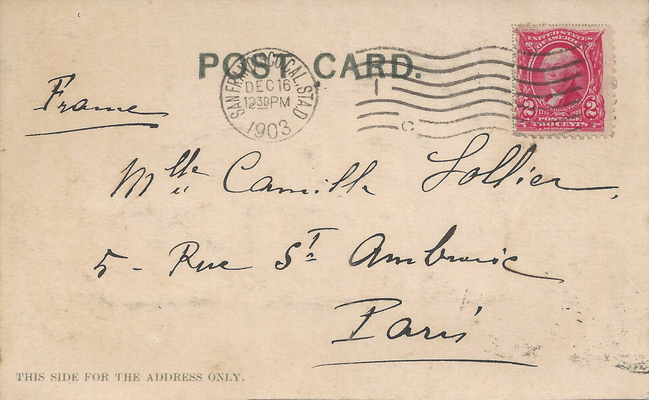 POST CARD.
SAN FRANCISCO, CAL. STA. D
DEC 16
12-30PM
1903
C
UNITED STATES
OF AMERICA
2 2
POSTAGE
TWO CENTS
France
Mlle Camille Lollier,
5 - Rue St Ambroise
Paris
THIS SIDE FOR THE ADDRESS ONLY.